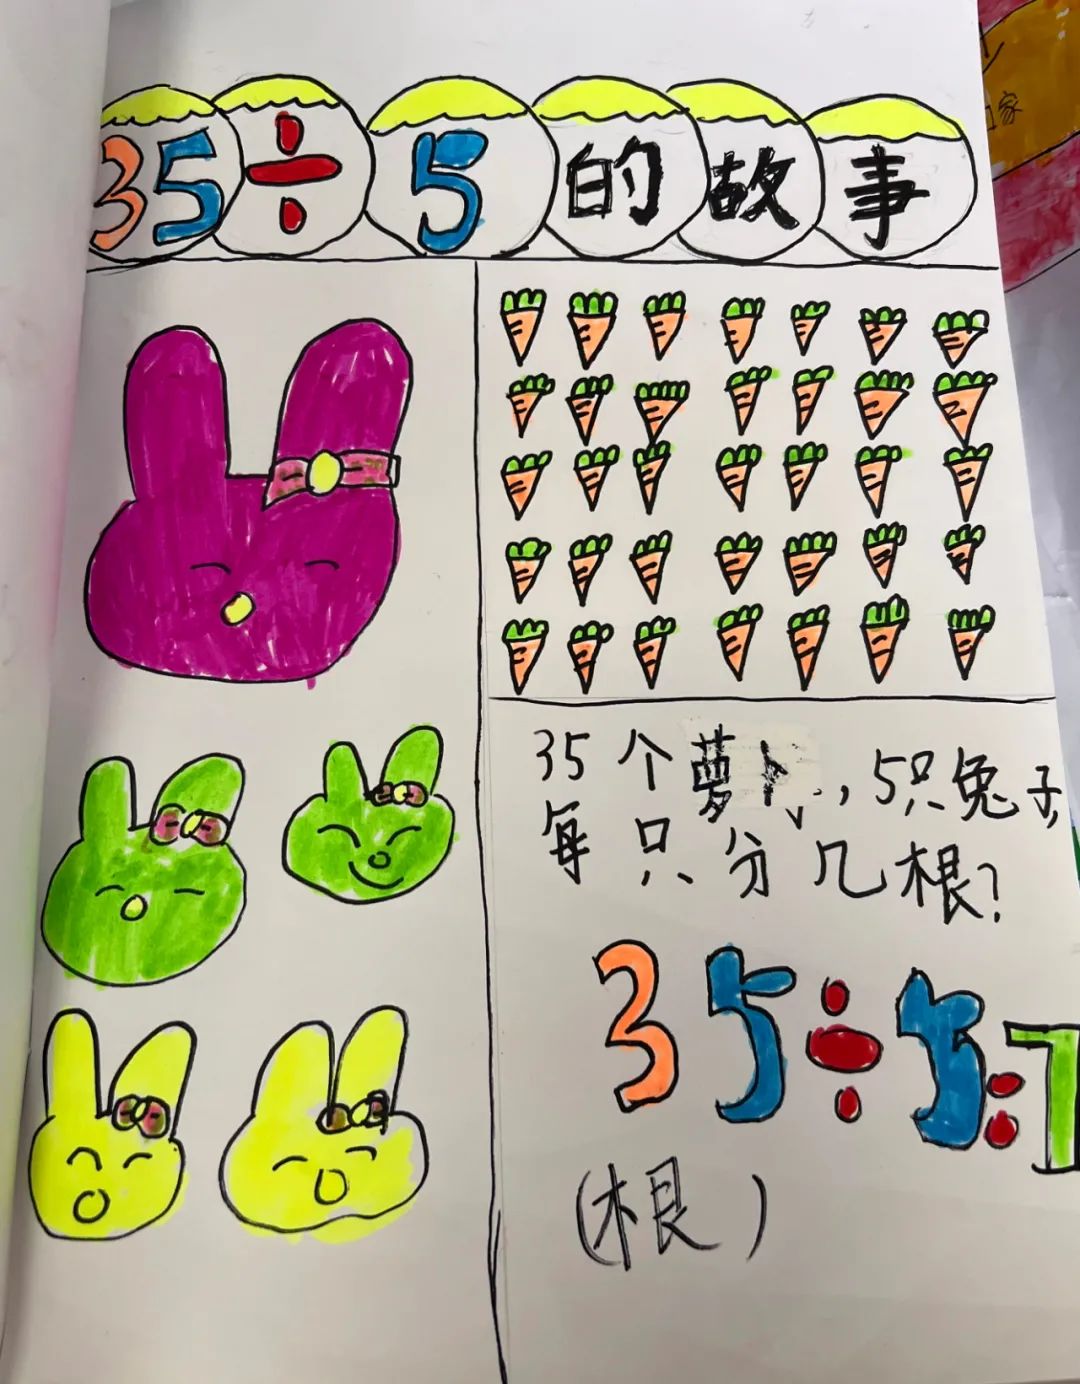 35÷5的故事
35个萝卜,5只兔子,
每只分几根?
35÷5=7
(根)
家